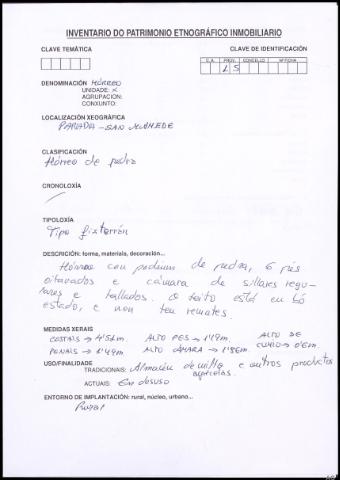 INVENTARIO DO PATRIMONIO ETNOGRÁFICO INMOBILIARIO
CLAVE TEMÁTICA
CLAVE DE IDENTIFICACIÓN
C.A. PROV. CONCELLO Nº FICHA
15
DENOMINACIÓN Hórreo
UNIDADE: X
AGRUPACION:
CONXUNTO:
LOCALIZACIÓN XEOGRÁFICA
PARADA - SAN MAMEDE
CLASIFICACIÓN
Hórreo de pedra
CRONOLOXÍA
TIPOLOXÍA
Tipo fixterrón
DESCRICIÓN: forma, materiais, decoración...
Hórreo con podium de pedra, 6 pés
oitavados e cámara de sillares regu-
lares e tallados. O teito está en bó
estado, e non ten remates.
MEDIDAS XERAIS
COSTAIS → 4'54m. ALTO PES → 1'19m. ALTO DE
PENAIS → 1'49m ALTO CÁMARA → 1'86m. CUMIO → 0'6m.
USO/FINALIDADE
TRADICIONAIS: Almacén de millo e outros productos
agrícolas.
ACTUAIS: En desuso
ENTORNO DE IMPLANTACIÓN: rural, núcleo, urbano...
Rural